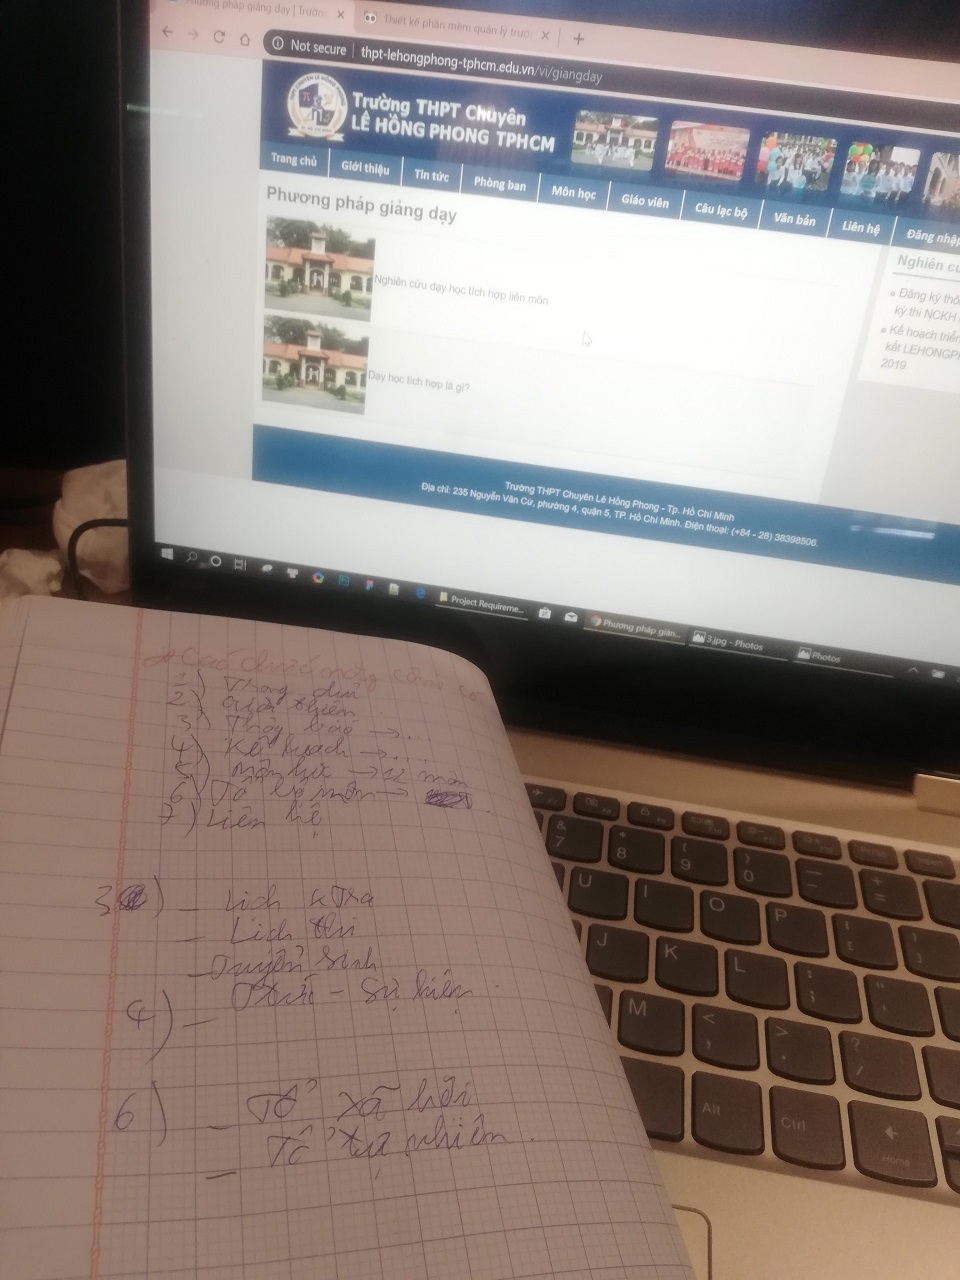 Phương pháp giảng dạy | Trườn
Thiết kế phần mềm quản lý trườ
Not secure | thpt-lehongphong-tphcm.edu.vn/vi/giangday
Trường THPT Chuyên
LÊ HỒNG PHONG TPHCM
Trang chủ Giới thiệu Tin tức Phòng ban Môn học Giáo viên Câu lạc bộ Văn bản Liên hệ Đăng nhập
Phương pháp giảng dạy
Nghiên cứu dạy học tích hợp liên môn
Dạy học tích hợp là gì?
Nghiên cứ
Đăng ký thô
kỳ thi NCKH
Kế hoạch triển
kết LEHONGPH
2019
Trường THPT Chuyên Lê Hồng Phong - Tp. Hồ Chí Minh
Địa chỉ: 235 Nguyễn Văn Cừ, phường 4, quận 5, TP. Hồ Chí Minh. Điện thoại: (+84 - 28) 38398506.
Project Requireme... Phương pháp giản... 3.jpg - Photos Photos
1) Trang chủ
2) Giới thiệu
3) Thông báo → ...
4) Kế hoạch → ...
5) Môn học → 12 môn
6) Tổ bộ môn →
7) Liên hệ
3) - Lịch ktra
- Lịch thi
- Tuyển sinh
4) - - Sự kiện
6) - Tổ xã hội
- Tổ tự nhiên
& 7 * 8 ( 9 ) 0 - + =
U I O P [ ]
J K L : ; " '
M < , > . ? /
Alt Ctrl Home